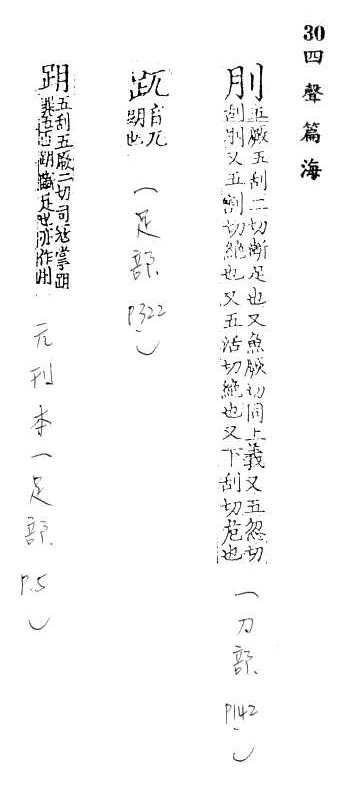 30四聲篇海
刖
五厥五刮二切斷足也又魚厥切同上義又五忽切
刮刖又五割切絶也又五活切絶也又下刮切危也
（刀部 P142）
𧿁
音兀
跀也
（足部 P322）
跀
五刮五厥二切司寇掌跀
跀足也亦作刖
元刊本（足部 P.5）